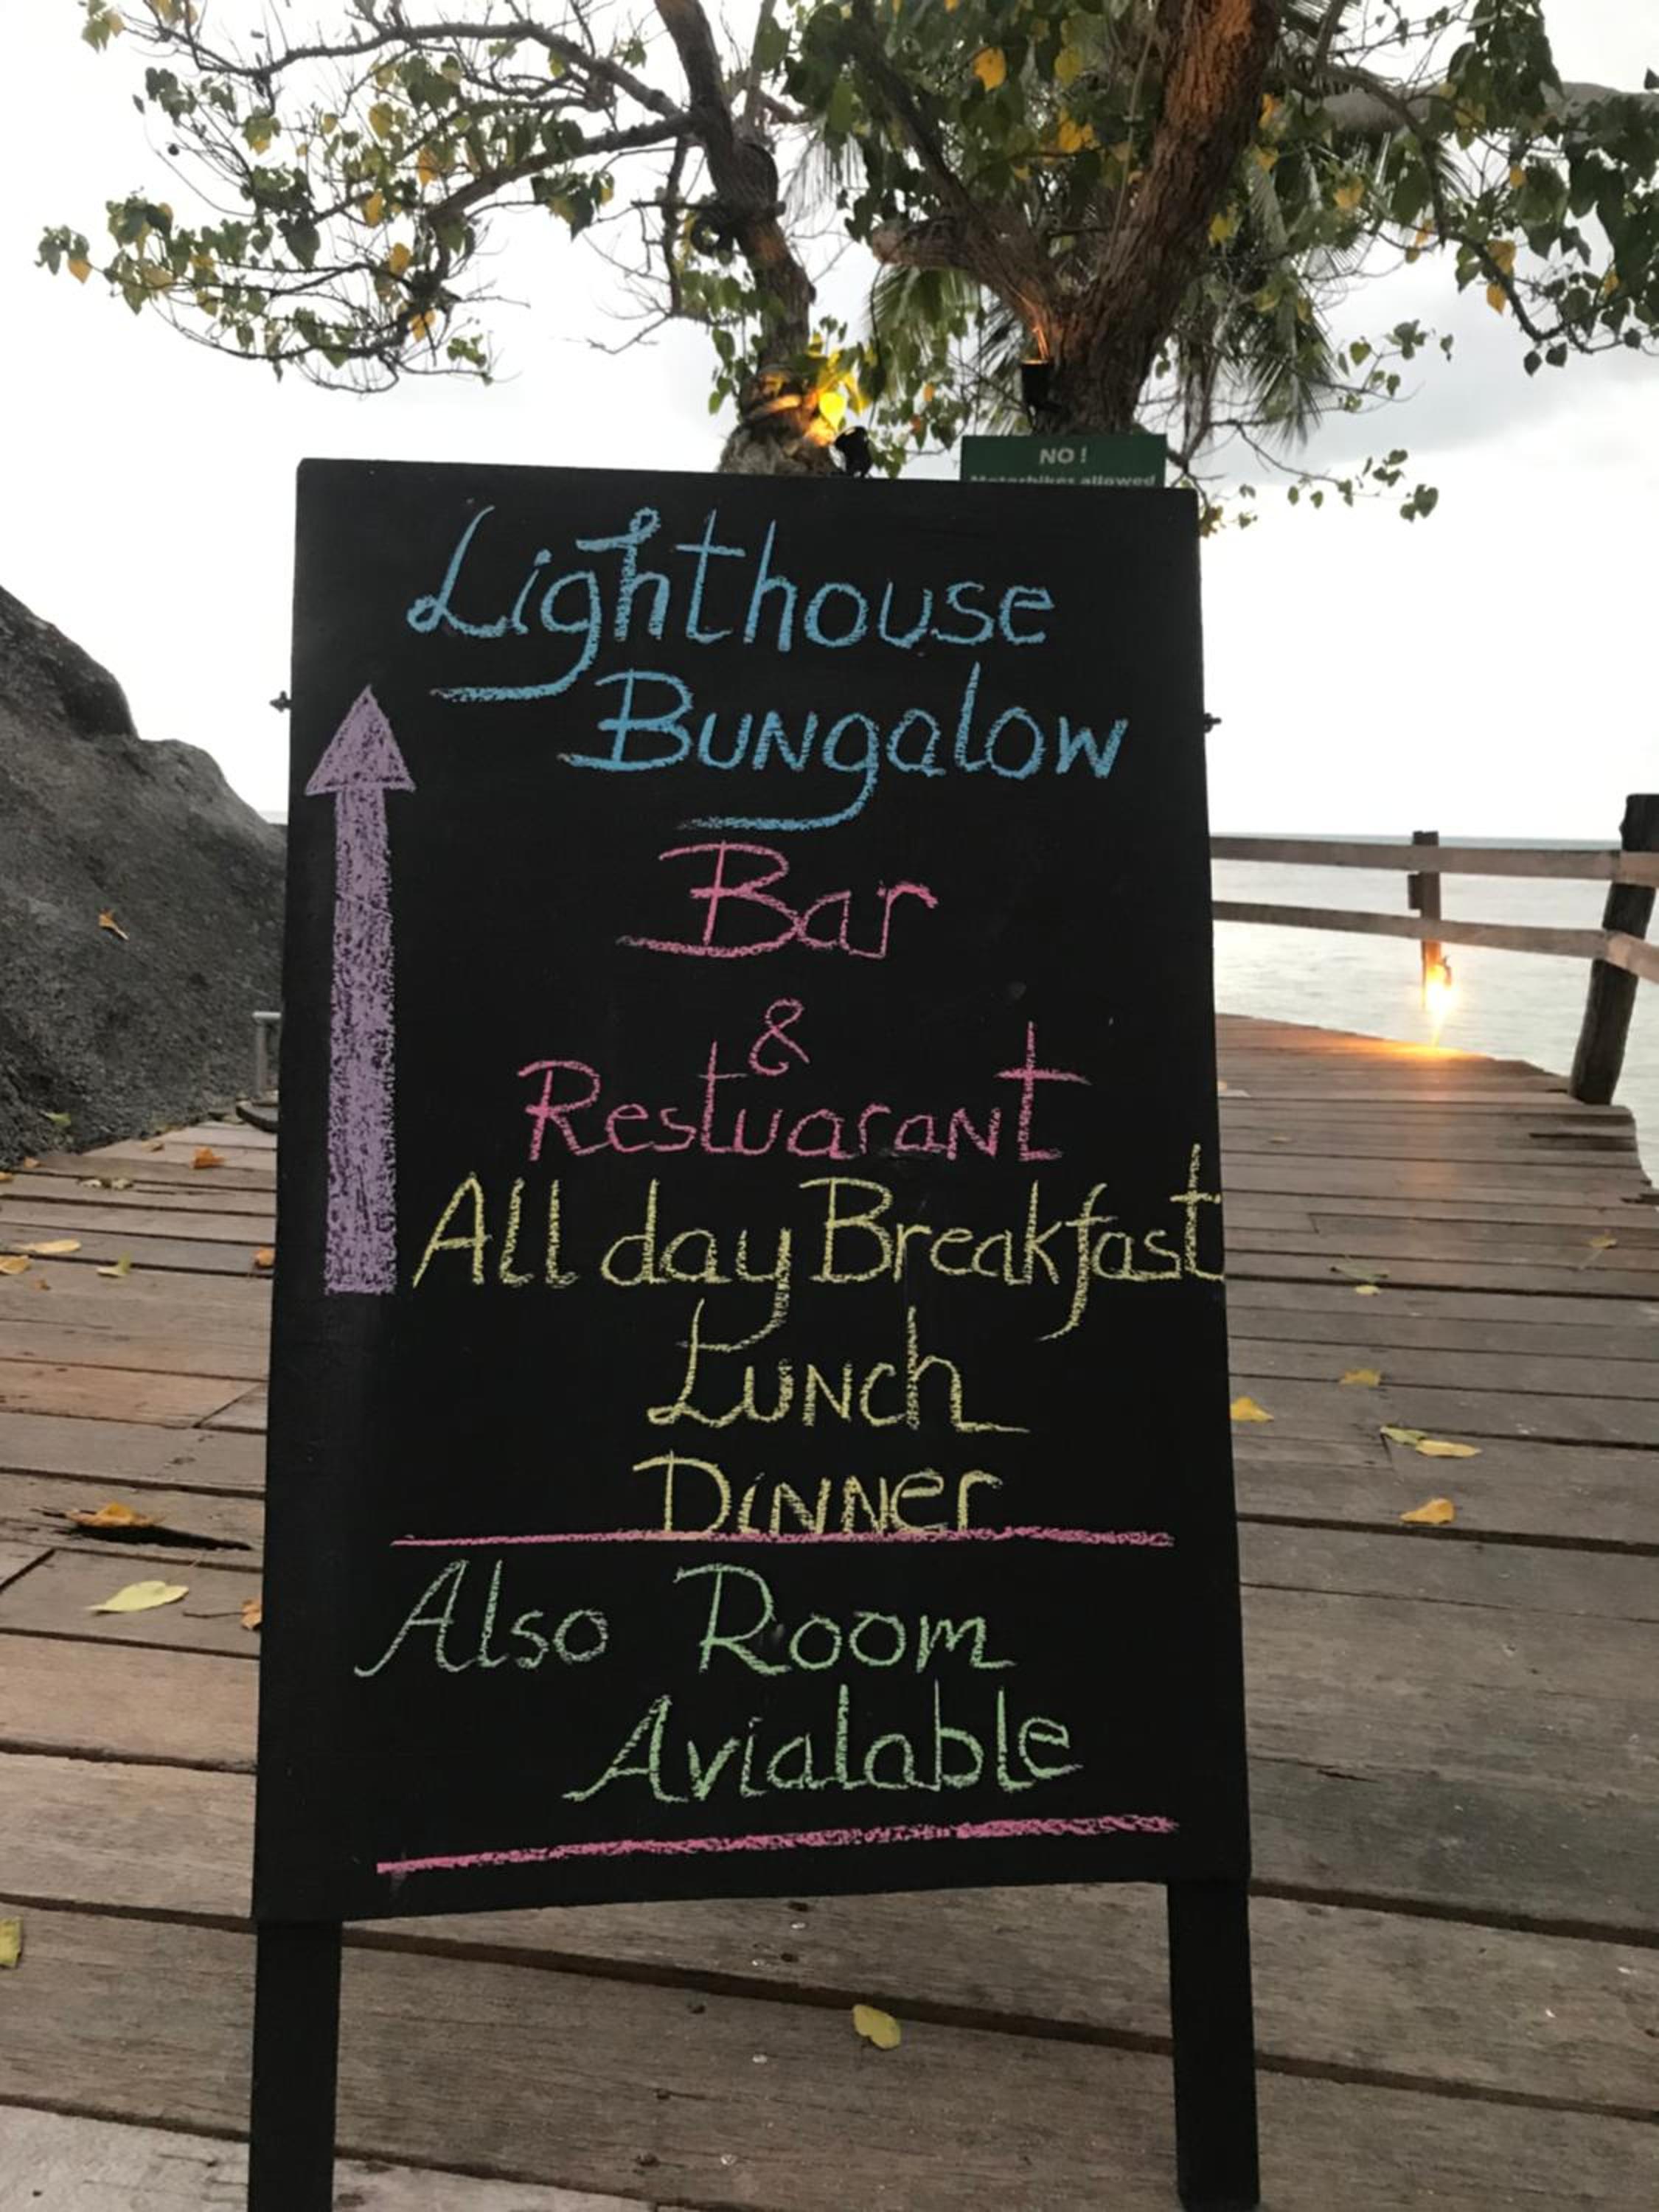 NO!
Motorbikes allowed
Lighthouse
Bungalow
Bar
&
Restuarant
All day Breakfast
Lunch
Dinner
Also Room
Avialable